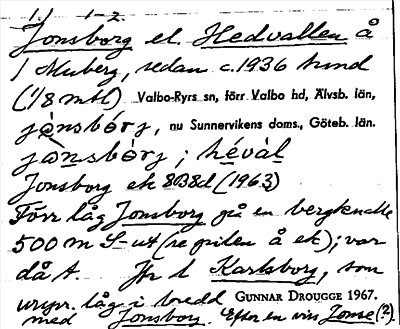 1.) 1-2.
Jonsborg el. Hedvallen å
1 Muberg, sedan c. 1936 hmd
(1/8 mtl) Valbo-Ryrs sn, förr Valbo hd, Älvsb. län,
jònsbórj, nu Sunnervikens doms., Göteb. län.
jònsbórj; hévàl
Jonsborg ek 8B8d (1963)
Förr låg Jonsborg på en bergknalle
500 m S-ut (se pilen å ek); var
då t. Jfr t Karlsborg, som
urspr. låg i bredd GUNNAR DROUGGE 1967.
med Jonsborg. Efter en viss Jonse (?).